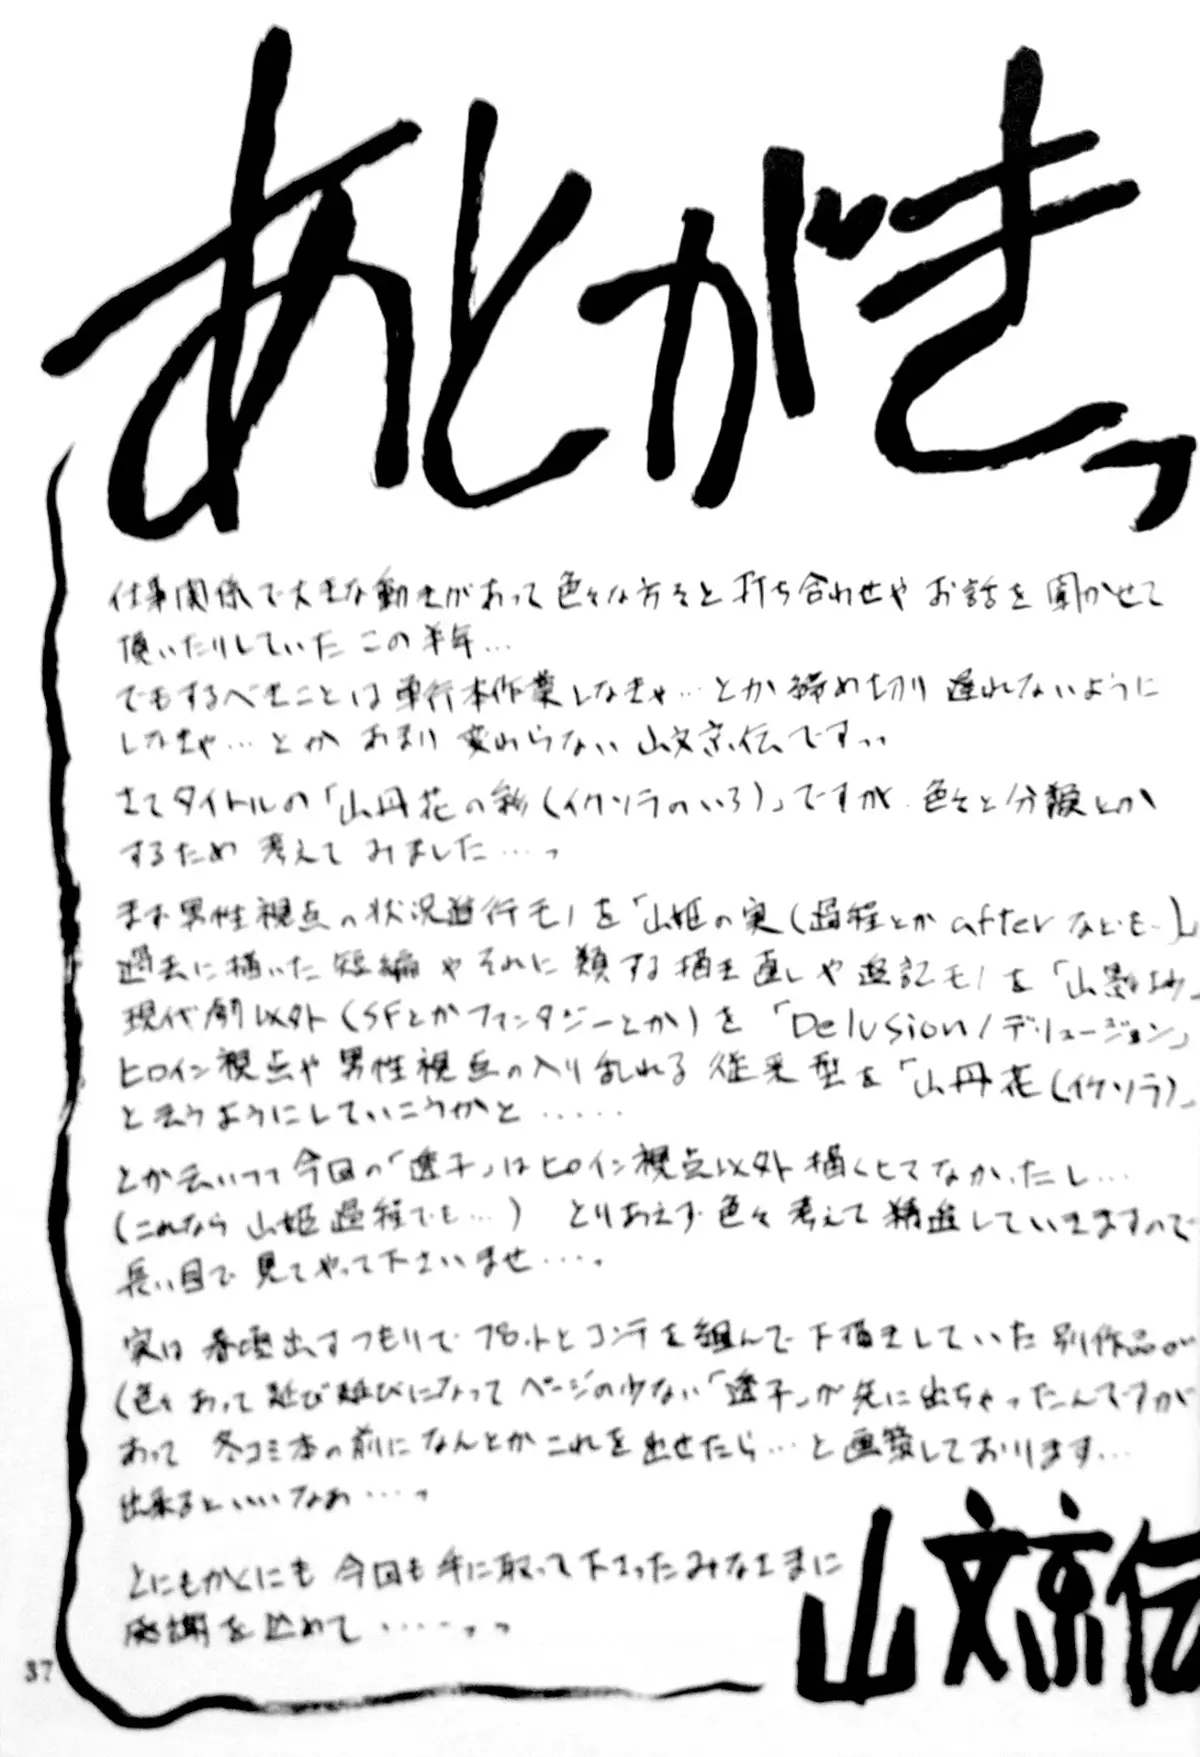 あとがきっ
仕事関係で大きな動きがあって色々な方々と打ち合わせやお話を聞かせて
頂いたりしていたこの半年…
でもするべきことは単行本作業しなきゃ…とか締め切り遅れないように
しなきゃ…とかあまり変わらない山文京伝ですっ
さてタイトルの「山丹花の彩(イケソラのいろ)」ですが、色々と分類とか
するため考えてみました……っ
まず男性視点の状況進行モノを「山姫の実(過程とかafterなども…)」
過去に描いた短編やそれに類する描き直しや追記モノを「山影抄」
現代劇以外(SFとかファンタジーとか)を「Delusion/デリュージョン」
ヒロイン視点や男性視点の入り乱れる従来型を「山丹花(イケソラ)」
と云うようにしていこうかと……
とか云いつつ今回の「透子」はヒロイン視点以外描くヒマなかったし…
(これなら山姫過程でも…) とりあえず色々考えて精進していきますので
長い目で見てやって下さいませ……。
実は春頃出すつもりでプロットとコンテを組んで下描きしていた別作品が
(色々あって延び延びになってページの少ない「透子」が先に出ちゃったんですが
あって 冬コミ本の前になんとかこれを出せたら…と画策しております…
出来るといいなぁ……っ
とにもかくにも今回も手に取って下さったみなさまに
感謝を込めて………っっ
山文京伝
37